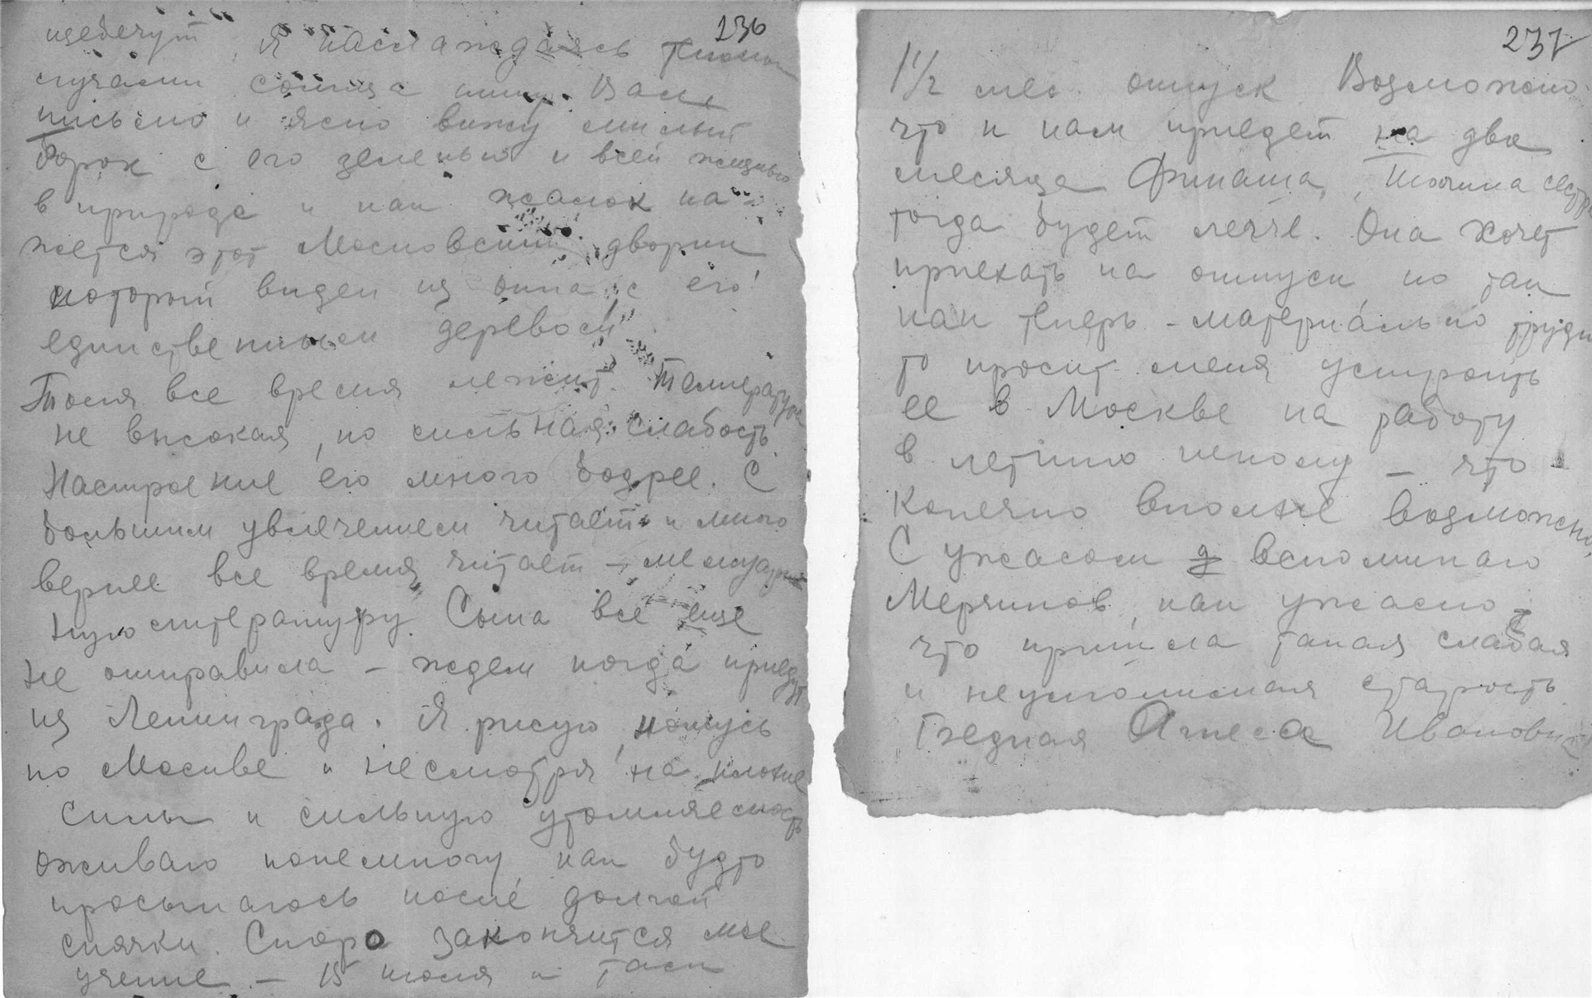 236
щебечут. Я наслаждаясь теплыми
лучами солнца пишу Вам
письмо и ясно вижу милый
борок с его зеленью и всей жизнью
в природе и как жалок ка-
жется этот Московский дворик
который виден из окна с его
единственным деревом.
Тося все время лежит. Температура
не высокая, но сильная слабость
Настроение его много бодрее. С
большим увлечением читает и много
вернее все время читает – мемуар
ную литературу. Сыта все еще
не отправила – ждем когда приедут
из Ленинграда. Я рисую, ношусь
по Москве и несмотря на плохие
силы и сильную утомляемость
оживаю понемногу, как будто
просыпаюсь после долгой
спячки. Скоро закончится мое
учение – 15 июля и там
237
1 1/2 мес. отпуск Возможно
что к нам приедет на два
месяца сестра
тогда будет легче. Она хочет
приехать на отпуск но так
как теперь – материально трудно
то просит меня устроить
ее в Москве на работу
в летнюю школу – что
конечно вполне возможно
С ужасом вспоминаю
как ужасно
что пришла такая слабая
и неумолимая старость
Бедная Агнеса Ивановна